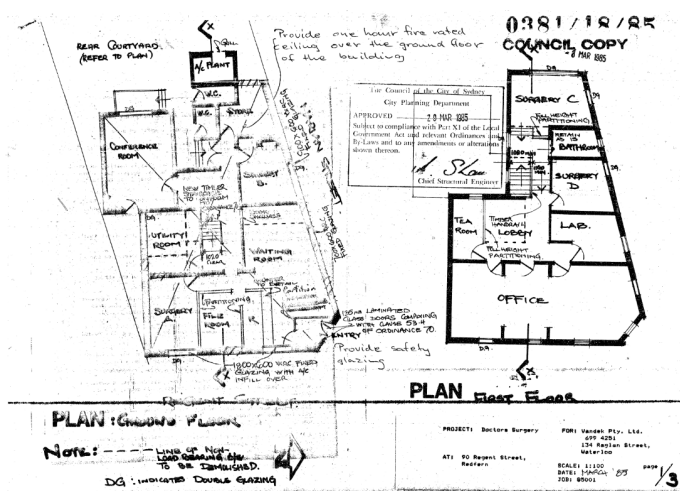 0381/18/85
COUNCIL COPY
- 8 MAR 1985
REAR COURTYARD.
(REFER TO PLAN)
Provide one hour fire rated
ceiling over the ground floor
of the building
A/C PLANT
W.C.
W.C.
STORE
CONFERENCE
ROOM
SURGERY
B.
UTILITY
ROOM
WAITING
ROOM
SURGERY
A.
ROOM
ENTRY
LAMINATED
GLASS DOORS COMPLYING
WITH CLAUSE 53.4
OF ORDINANCE 70.
Provide safety
glazing
GLAZING WITH A/C
INFILL OVER
The Council of the City of Sydney
City Planning Department
APPROVED 28 MAR 1985
Subject to compliance with Part XI of the Local
Government Act and relevant Ordinances and
By-Laws and to any amendments or alterations
shown thereon.
Chief Structural Engineer
DG.
SURGERY C
FULL HEIGHT
PARTITIONING
RETAIN
AS IS
BATHROOM
SURGERY
D
TEA
ROOM
TIMBER
HANDRAIL
LOBBY
LAB.
FULL HEIGHT
PARTITIONING.
OFFICE
DG.
PLAN FIRST FLOOR
PLAN: GROUND FLOOR
NOTE: ----- LINE OF NON-
LOAD BEARING B/W
TO BE DEMOLISHED.
DG : INDICATES DOUBLE GLAZING
PROJECT: Doctors Surgery
AT: 90 Regent Street,
Redfern
FOR: Vandek Pty. Ltd.
699 4251
134 Raglan Street,
Waterloo
SCALE: 1:100
DATE: MARCH '85
JOB: 85001
page 1/3